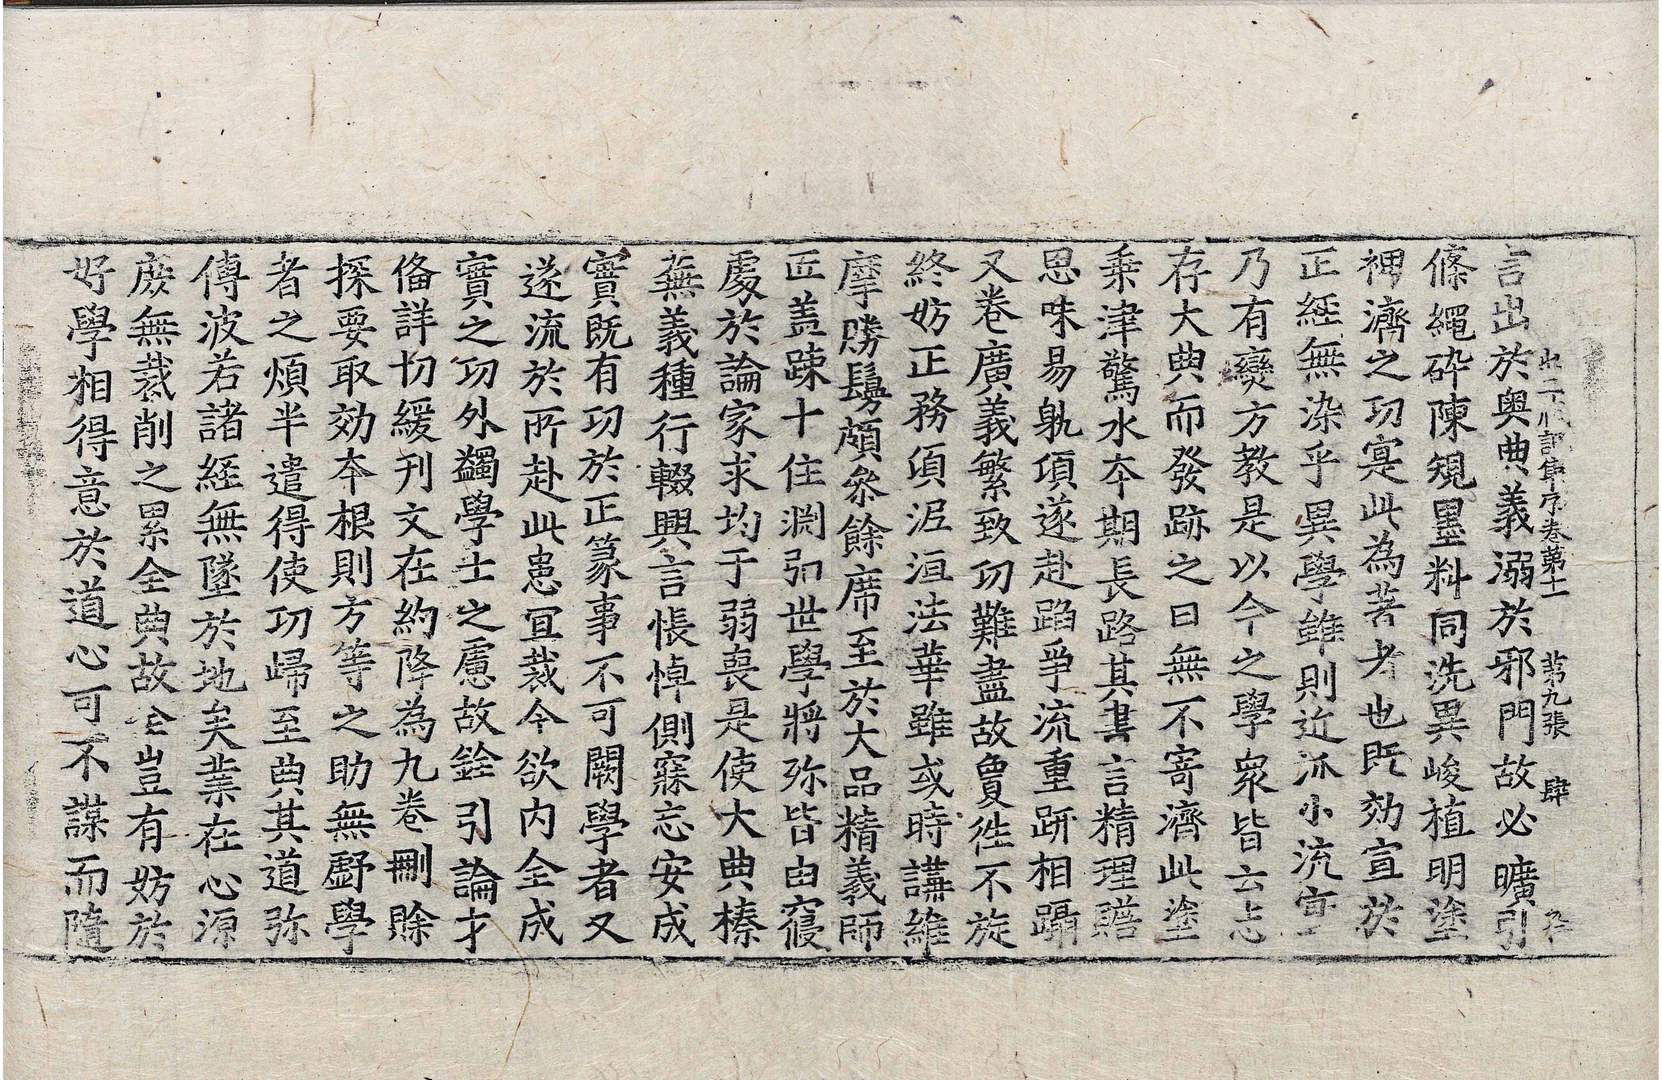 出三藏記集序卷第十一 第九張 肆
言出於奥典義溺於邪門故必曠引
條繩碎陳規墨料同洗異峻植明塗
裨濟之功寔此為著者也既効宣於
正經無染乎異學雖則近派小流寔
乃有變方教是以今之學衆皆云志
存大典而發跡之日無不寄濟此塗
乘津驚水夲期長路其書言精理贍
思味易躭頃遂赴蹈爭流重趼相躡
又卷廣義繁致功難盡故夐徃不旋
終妨正務頃泥洹法華雖或時講維
摩勝鬘頗參餘席至於大品精義師
匠盖踈十住淵弘世學將弥皆由寢
處於論家求均于弱喪是使大典榛
蕪義種行輟興言悵悼側寐忘安成
實既有功於正篆事不可闕學者又
遂流於所赴此患宜裁今欲內全成
實之功外蠲學士之慮故銓引論才
俻詳切緩刊文在約降為九卷刪賒
探要取効夲根則方等之助無虧學
者之煩半遣得使功歸至典其道弥
傳波若諸經無墜於地矣業在心源
庶無裁削之累全典故全豈有妨於
好學相得意於道心可不謀而隨